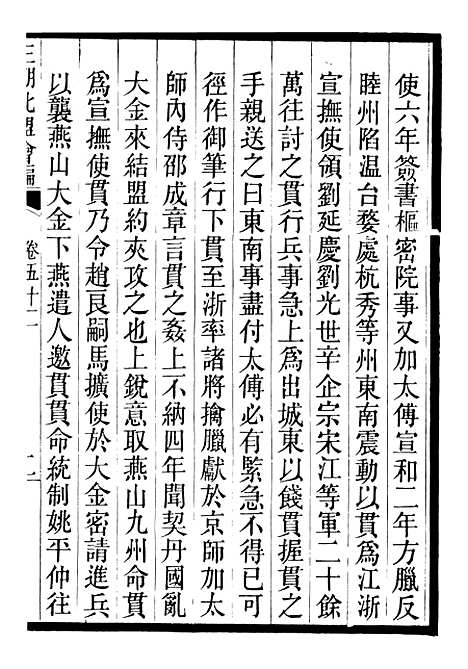 使六年簽書樞密院事又加太傅宣和二年方臘反
睦州陷温台婺處杭秀等州東南震動以貫爲江浙
宣撫使領劉延慶劉光世辛企宗宋江等軍二十餘
萬往討之貫行兵事急上爲出城東以餞貫握貫之
手親送之曰東南事盡付太傅必有緊急不得已可
徑作御筆行下貫至浙率諸將擒臘獻於京師加太
師內侍邵成章言貫之姦上不納四年聞契丹國亂
大金來結盟約夾攻之也上銳意取燕山九州命貫
爲宣撫使貫乃令趙良嗣馬擴使於大金密請進兵
以襲燕山大金下燕遣人邀貫貫命統制姚平仲往
三朝北盟會編
卷五十二